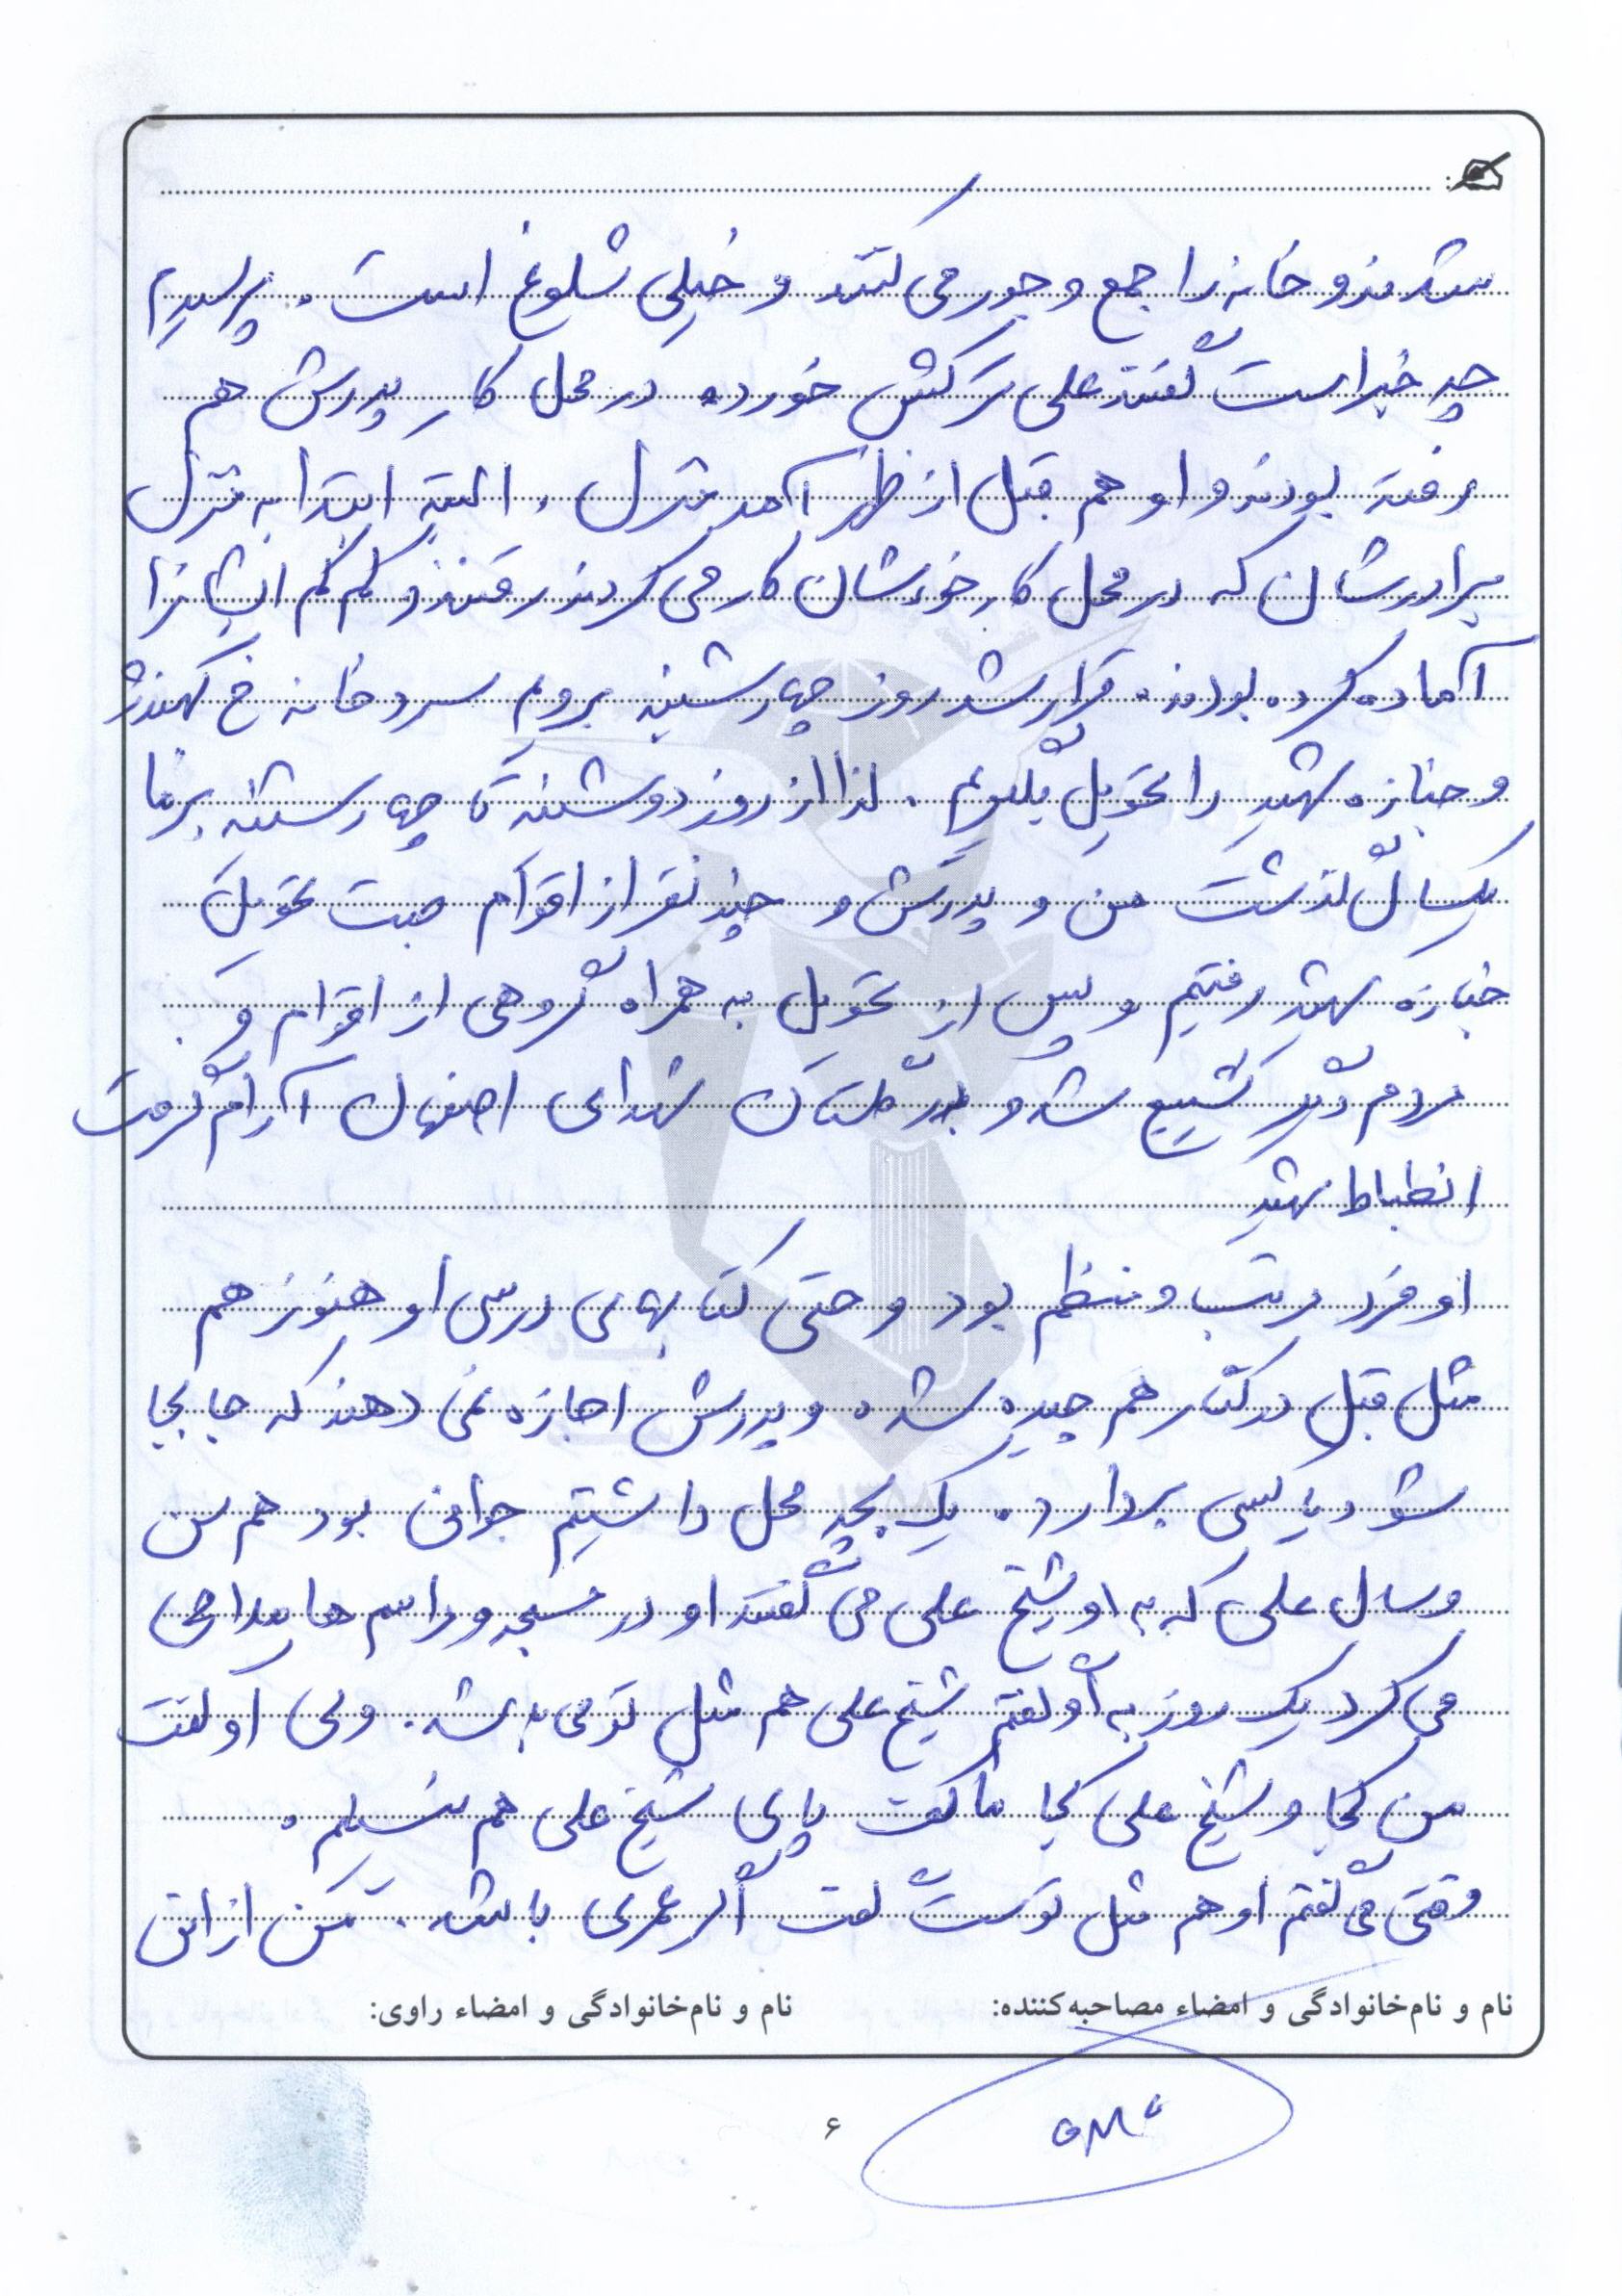 شدند و خانه را جمع و جور می کنند و خیلی شلوغ است. پرسیدم
چه خبر است گفتند علی ترکش خورده در محل کار پدرش هم
رفته بودند و او هم قبل از ظهر آمد منزل. البته ابتدا به منزل
برادرشان که در محل کار خودشان کار می کردند رفتند و کم کم ایشانرا
آماده کرده بودند. قرار شد روز چهارشنبه برویم سردخانه خ کهندژ
و جنازه شهید را تحویل بگیریم. لذا از روز دوشنبه تا چهارشنبه بر ما
یکسال گذشت من و پدرش و چند نفر از اقوام جهت تحویل
جنازه شهید رفتیم و پس از تحویل به همراه گروهی از اقوام و
مردم دیگر تشییع شد و در گلستان شهدای اصفهان آرام گرفت
انظباط شهید
او فرد مرتب و منظم بود و حتی کتابهای درسی او هنوز هم
مثل قبل در کنار هم چیده شده و پدرش اجازه نمی دهند که جابجا
شود یا کسی بردارد. یک بچه محل داشتیم جوانی بود هم سن
و سال علی که به او شیخ علی می گفتند او در مسجد و مراسم ها مداحی
می کرد یک روز به او گفتم شیخ علی هم مثل تو می باشد. ولی او گفت
من کجا و شیخ علی کجا ما کفت پای شیخ علی هم نمیشیم.
وقتی می گفتم او هم مثل توست گفت اگر عمری باشد. من از این
نام و نام‌خانوادگی و امضاء مصاحبه‌کننده:
نام و نام‌خانوادگی و امضاء راوی:
۶